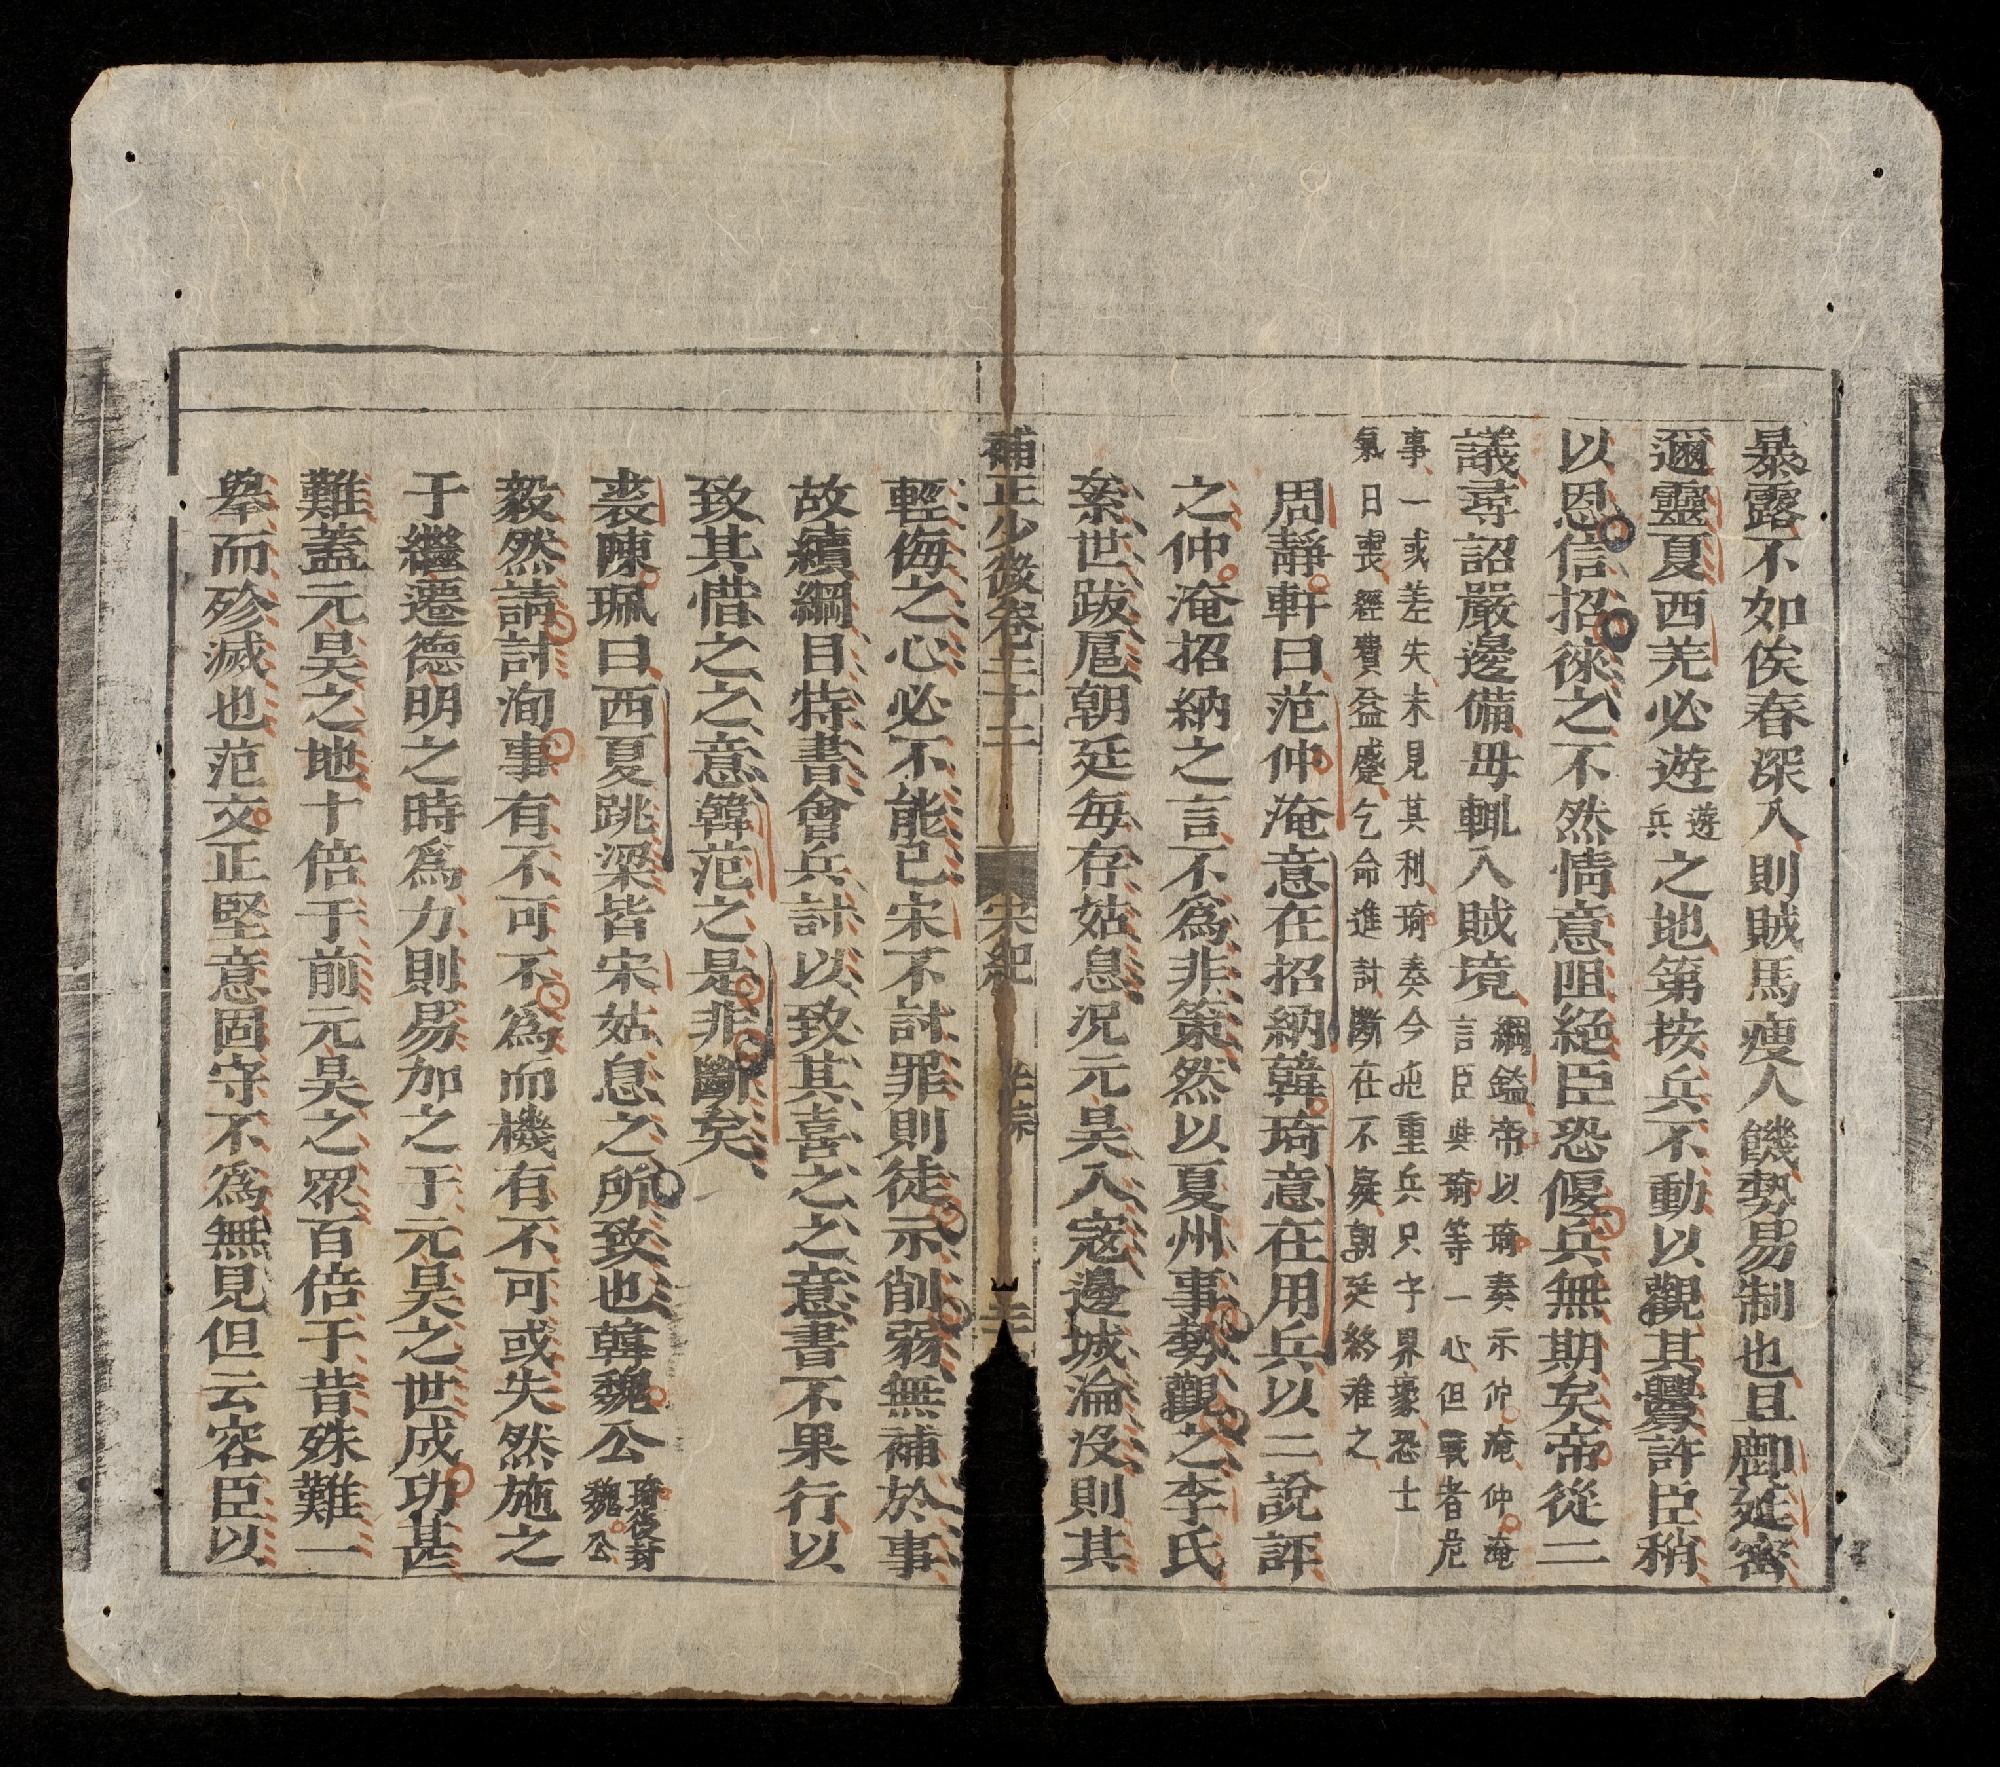 暴露不如俟春深入則賊馬瘦人饑勢易制也且鄜延密
邇靈夏西羌必遊遊兵之地第按兵不動以觀其釁許臣稍
以恩信招徠之不然情意阻絕臣恐偃兵無期矣帝從二
議尋詔嚴邊備毋輒入賊境綱鑑帝以琦奏示仲淹仲淹
言臣與琦等一心但戰者危
事一或差失未見其利琦奏今屯重兵只守界壕恐士
氣日喪經費益蹙乞命進討斷在不疑朝廷終难之
周靜軒曰范仲淹意在招納韓琦意在用兵以二說評
之仲淹招納之言不為非策然以夏州事勢觀之李氏
叅世跋扈朝廷每存姑息况元昊入寇邊城淪沒則其
補正少微卷二十二 宋紀 仁宗
輕侮之心必不能已宋不討罪則徒示削弱無補於事
故續綱目特書會兵討以致其喜之之意書不果行以
致其惜之之意韓范之是非斷矣
裘陳珮曰西夏跳梁皆宋姑息之所致也韓魏公琦後封魏公
毅然請討洵事有不可不為而機有不可或失然施之
于繼遷德明之時為力則易加之于元昊之世成功甚
難蓋元昊之地十倍于前元昊之眾百倍于昔殊難一
舉而殄滅也范文正堅意固守不為無見但云容臣以